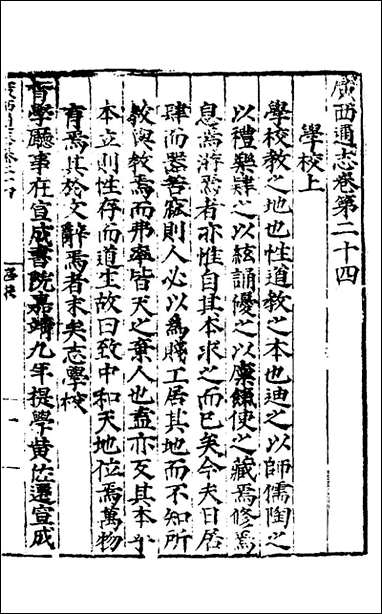 廣西通志卷第二十四
學校上
學校教之地也性道教之本也迪之以師儒陶之
以禮樂肄之以絃誦優之以廩餼使之藏焉修焉
息焉游焉者亦惟自其本求之而已矣今夫日居
肆而器苦窳則人必以為賤工居其地而不知所
教與教焉而弗率皆天之棄人也盍亦反其本乎
本立則性存而道生故曰致中和天地位焉萬物
育焉其於文辭焉者末矣志學校
提學廳事在宣成書院嘉靖九年提學黃佐遷宣成